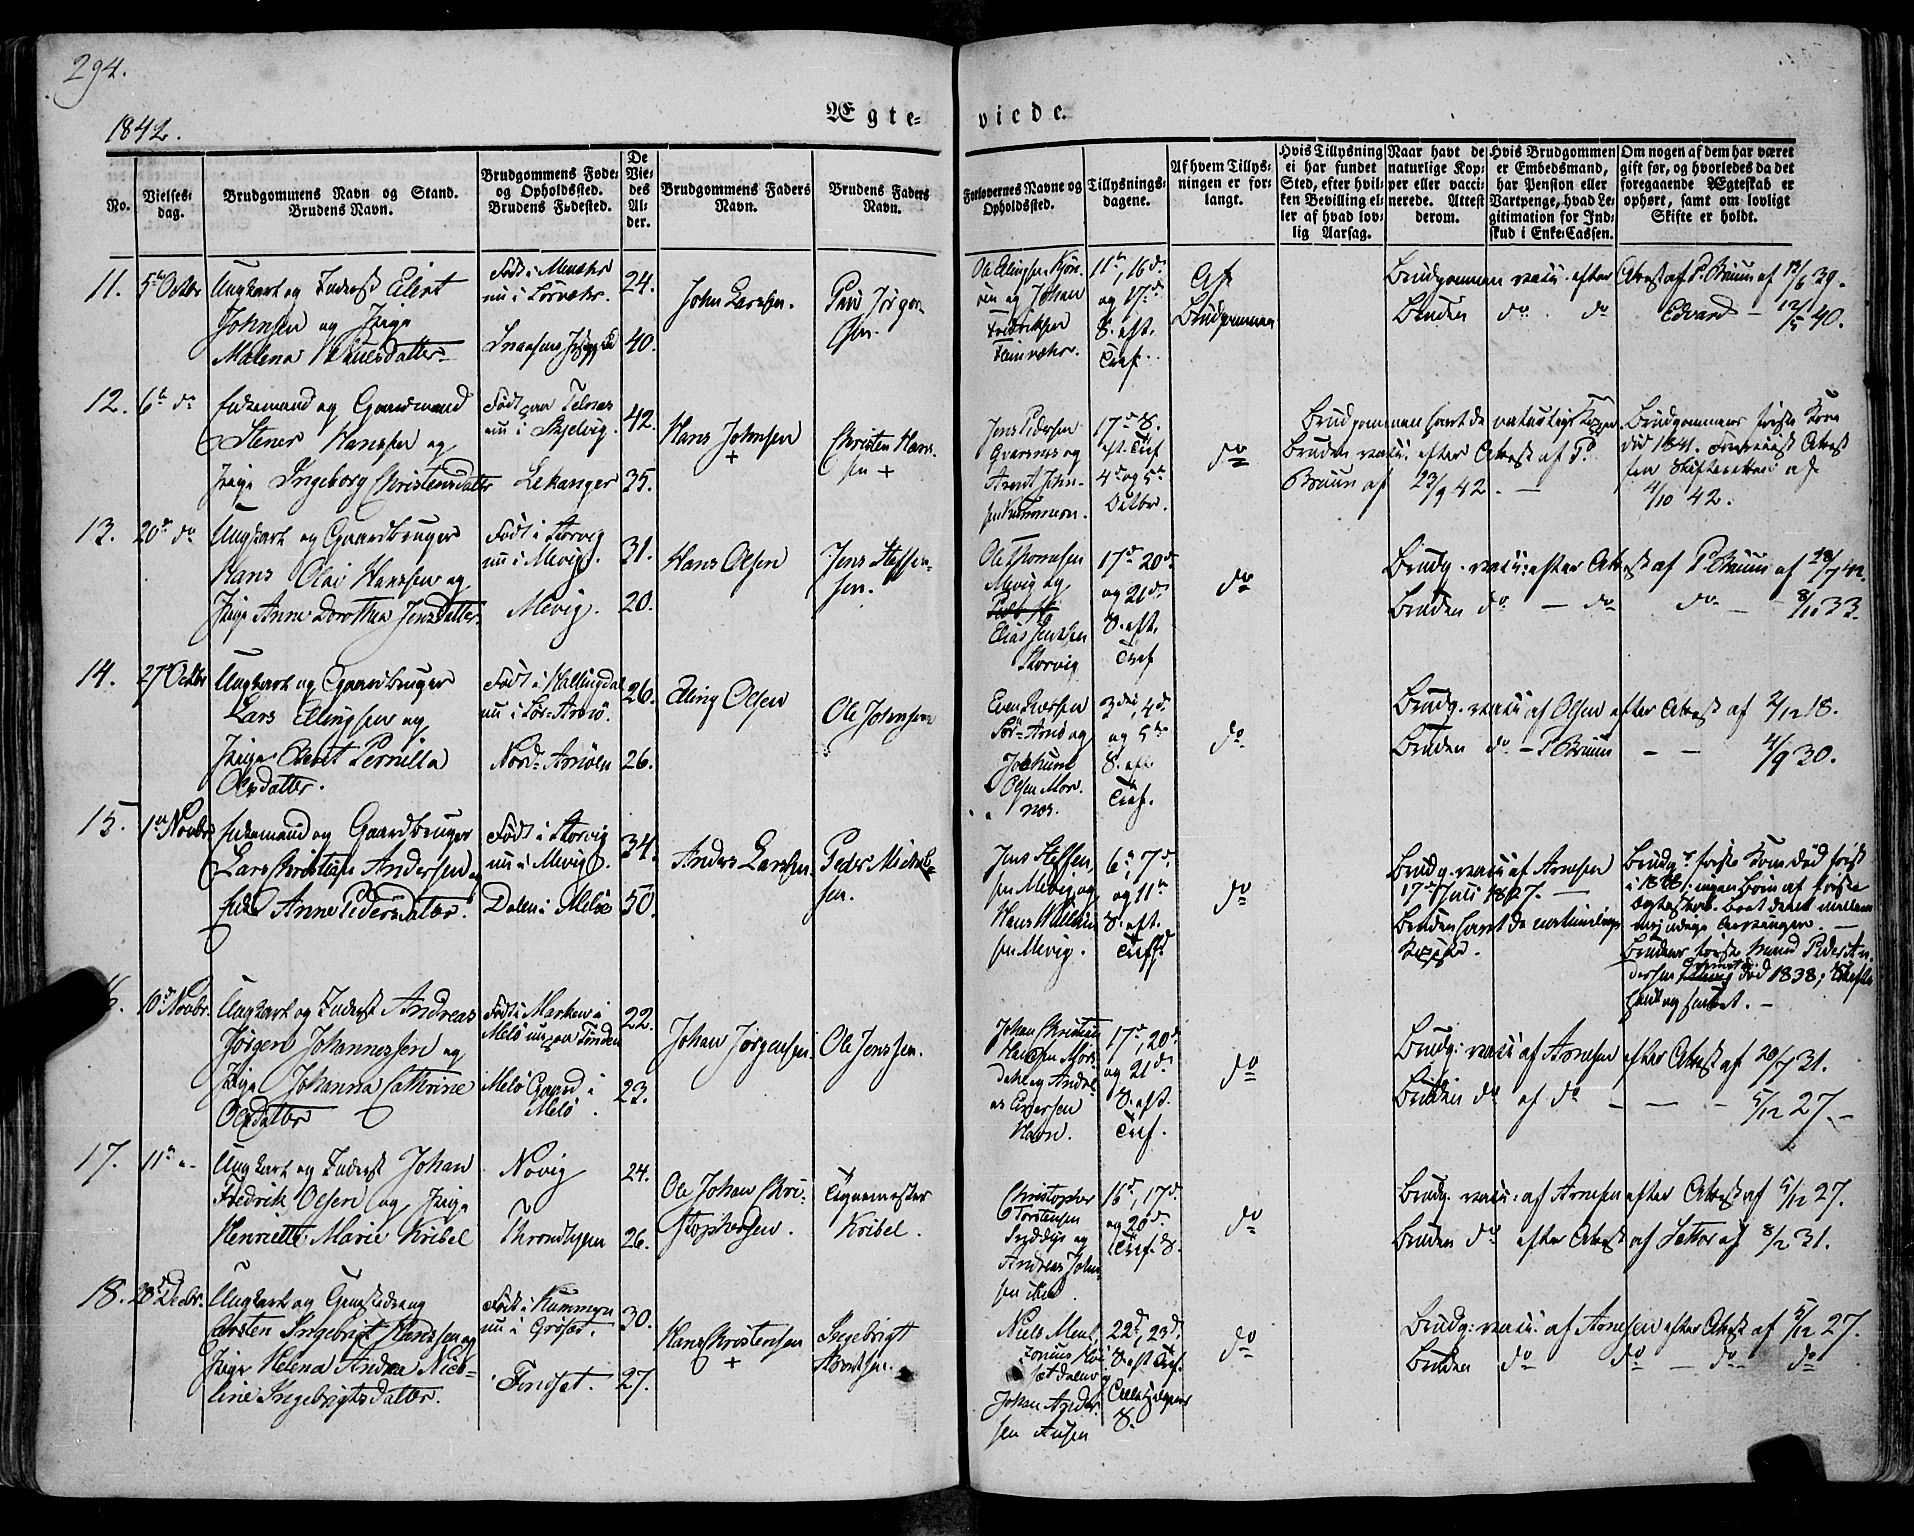 294.
1842.
Ægte-
viede.
No.
Vielses-
dag.
Brudgommens Navn og Stand.
Brudens Navn.
Brudgommens Føde-
og Opholdssted.
Brudens Fødested.
De
Vie-
des
Al-
der.
Brudgommens Faders
Navn.
Brudens Faders
Navn.
Forlovernes Navne og
Opholdssted.
Tillysnings-
dagene.
Af hvem Tillys-
ningen er for-
langt.
Hvis Tillysning
ei har fundet
Sted, efter hvil-
ken Bevilling el-
ler af hvad lov-
lig Aarsag.
Naar havt de
naturlige Kop-
per eller vacci-
nerede. Attest
derom.
Hvis Brudgommen
er Embedsmand,
har Pension eller
Vartpenge, hvad Le-
gitimation for Ind-
skud i Enke-Cassen.
Om nogen af dem har været
gift før, og hvorledes da det
foregaaende Ægteskab er
ophørt, samt om lovligt
Skifte er holdt.
11.
5te Octbr
Ungkarl og Inderst Elert
Johnsen og Pige
Malena
Født i
nu i
24.
40.
John Larssen.
Povl Jørgen-
sen.
og Johan
Fredriksen
11te, 16de
og 17de
S. eft.
Tref.
Af
Brudgommen
Brudgommen vacc. efter Attest af P. Bruun af 13/6 39.
Bruden do do Edvard – 12/15 40.
12.
6te do
Enkemand og Gaardmand
Stener Hanssen og
Pige Ingeborg Christensdatter
Født paa Telnes
nu i Skjelvig.
Lekanger
42.
35.
Hans Johnsen
+
Christen Han-
sen +
Jens Pedersen
og
Arnt John-
sen
17de S.
eft. Tref
4de og 5te
Octbr.
do
Brudgommen havt de naturlige Kopper.
Bruden vacc. efter Attest af P.
Bruun af 23/9 42. –
Brudgommens første Kone
død 1841. Attest
fra Skifteretten af
4/10 42.
13.
20de do
Ungkarl og Gaardbruger
Hans Olai Hanssen og
Pige Anne Dorothea Jensdatter
Født i Storvig
nu i Mevig.
Mevig.
31.
20.
Hans Olsen
Jens Steffen-
sen.
Ole Thomesen
Mevig og
Elias Jenssen
Storvig
17de 20de
og 21de
S. eft.
Tref
do
Brudg. vacc. efter Attest af P. Bruun af 18/7 42.
Bruden do – do do – 8/10 33.
14.
27de Octbr
Ungkarl og Gaardbruger
Lars Ellingsen og
Pige Beret Pernilla
Olsdatter.
Født i Hallingdal
nu i Sør-Arnø.
Nord-Arnøen
26.
26.
Elling Olsen
Ole Johnsen
Sør-Arnø og
Olsen
3die, 4de
og 5te
S. eft
Tref.
do
Brudg. vacc. af Olsen efter Attest af 2/12 18.
Bruden do – P. Bruun – – 4/9 30.
15.
1ste Novbr
Enkemand og Gaardbruger
Lars Christian Andersen og
Enke Anne Pedersdatter.
Født i Storvig
nu i Mevig.
Dalen i Meløe
34.
50.
Anders Larssen.
Peder Mickel-
sen.
Jens Steffen-
sen Mevig og
Hans
sen Mevig.
6te, 7de
og 11te
S. eft.
Tref
do
Brudg. vacc. af Arnesen
17de Juli 1827. –
Bruden havt de naturlige
Kopper.
Brudg. første Kone død
i 18 ; ingen Børn af første
Ægteskab.
Brudens første Mand Peder An-
dersen død 1838;
16.
10de Novbr.
Ungkarl og Inderst Andreas
Jørgen Johannessen og
Pige Johanna Cathrine
Olsdatter
Født i Marken i
Melø nu paa
Melø Gaard i
Melø.
22.
23.
Johan Jørgensen
Ole Jenssen.
Johan Christian
Hansen
og Andre-
as Eversen
Havn.
17de, 20de
og 21de
S. eft.
Tref.
do
Brudg: vacc. af Arnesen efter Attest af 20/7 31.
Bruden do af do – – – 5/12 27. –
17.
11te "
Ungkarl og Inderst Johan
Fredrik Olsen og Pige
Henriette Marie Kribel
Novig
Throndhjem
24.
26.
Ole Johan Chri-
stophersen.
Kribel.
Christopher
Torstensen
og
Andreas John-
sen ibid.
16de, 17de
og 20de
Tref. S.
do
Brudg. vacc: af Arnesen efter Attest af 5/12 27.
Bruden do efter Attest af af 8/2 31.
18.
28de Decbr.
Ungkarl og Tjenestedreng
Carsten Ingebrigt Hanssen og
Pige Helena Andrea Nico-
line Ingebrigtsdatter.
Født i
nu i
Finset.
30.
27.
Hans Christensen
+
Ingebrigt
Niels
Johan Ander-
sen
22de, 23de
S. eft Tref.
S.
do
Brudg: vacc. af Arnesen efter Attest af 5/12 27.
Bruden do do – do do